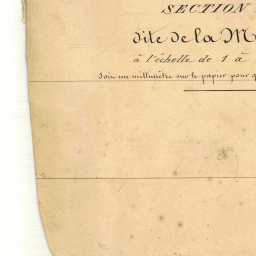 SECTION
dite de la M
à l'échelle de 1 à
Soit un millimètre sur le papier pour